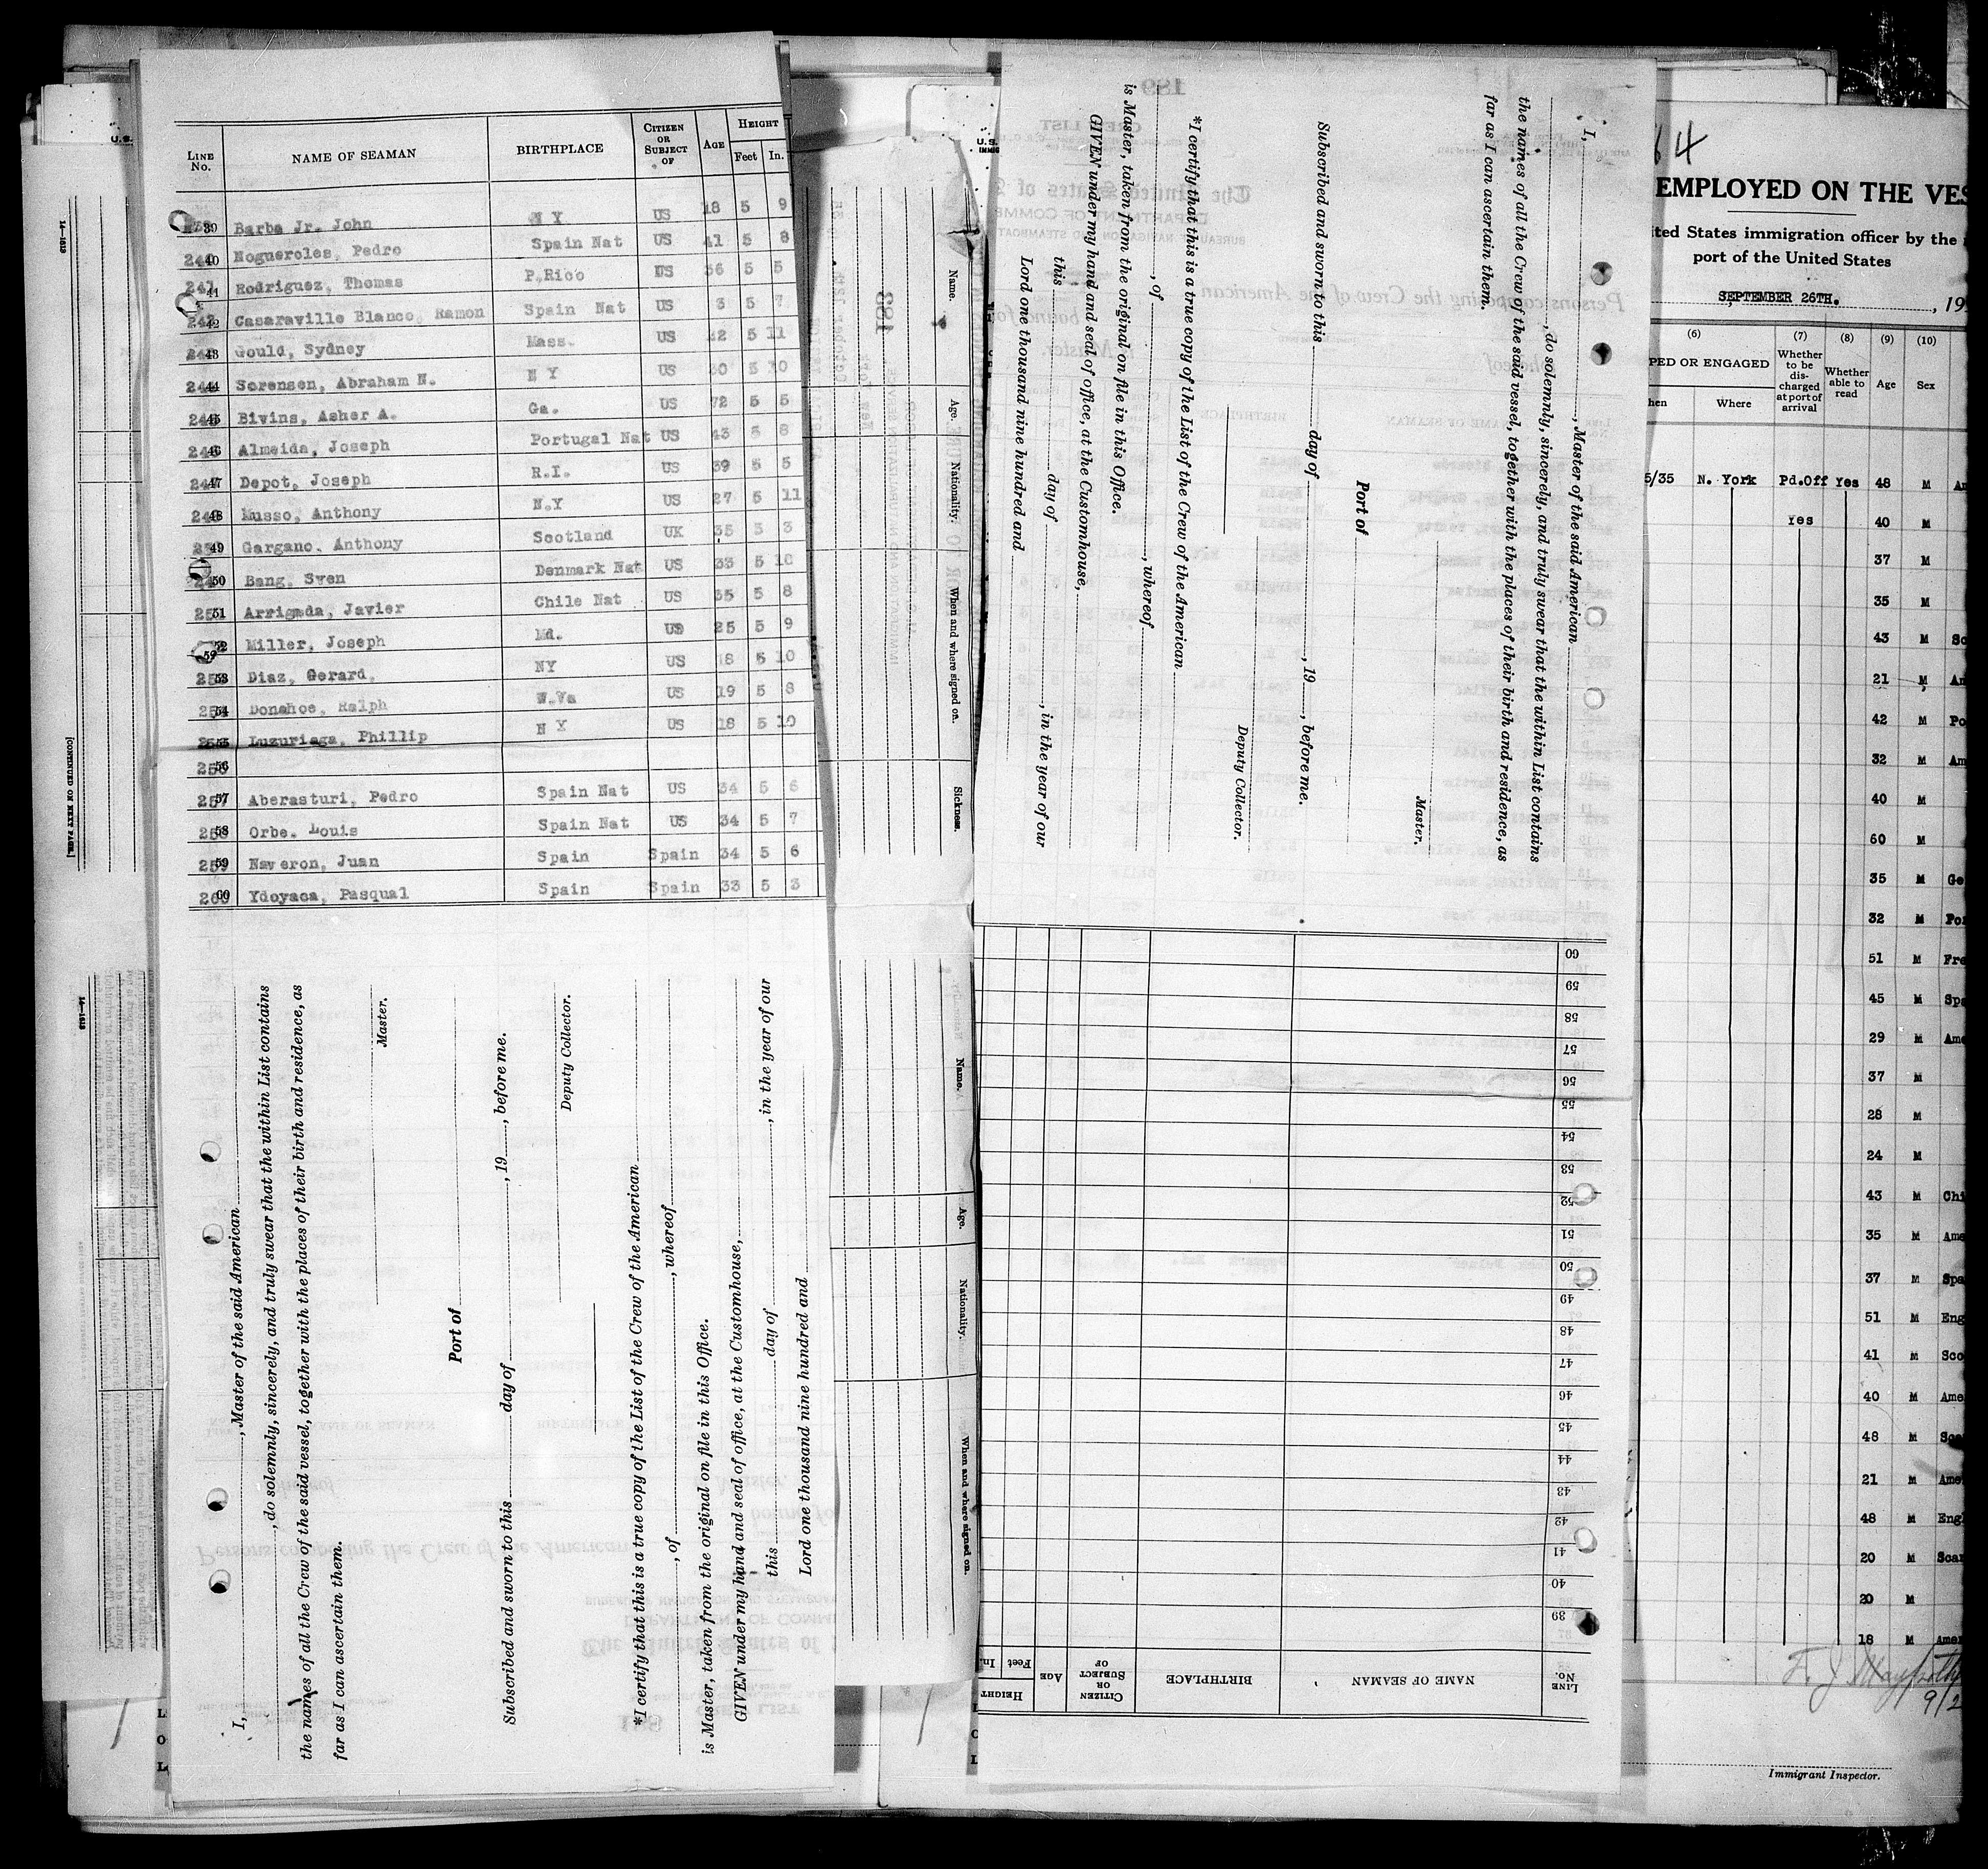 LINE No. NAME OF SEAMAN BIRTHPLACE CITIZEN OR SUBJECT OF AGE HEIGHT Feet In.
39 Barba Jr. John N Y US 18 5 9
40 Nogueroles, Pedro Spain Nat US 41 5 8
41 Rodriguez, Thomas P.Rico US 36 5 5
42 Casaraville Blanco, Ramon Spain Nat US 3 5 7
43 Gould, Sydney Mass. US 22 5 11
44 Sorensen, Abraham N. N Y US 30 5 10
45 Bivins, Asher A. Ga. US 72 5 5
46 Almeida, Joseph Portugal Nat US 43 5 8
47 Depot, Joseph R.I. US 39 5 5
48 Musso, Anthony N.Y US 27 5 11
49 Gargano, Anthony Scotland UK 35 5 3
50 Bang, Sven Denmark Nat US 33 5 10
51 Arrigada, Javier Chile Nat US 35 5 8
52 Miller, Joseph Md. US 25 5 9
53 Diaz, Gerard, NY US 18 5 10
54 Donahoe, Ralph W.Va US 19 5 8
55 Luzuriaga, Phillip N Y US 18 5 10
56
57 Aberasturi, Pedro Spain Nat US 34 5 6
58 Orbe, Louis Spain Nat US 34 5 7
59 Naveron, Juan Spain Spain 34 5 6
60 Ydoyaca, Pasqual Spain Spain 33 5 3
I, , Master of the said American
, do solemnly, sincerely, and truly swear that the within List contains
the names of all the Crew of the said vessel, together with the places of their birth and residence, as
far as I can ascertain them.
Master.
Port of
Subscribed and sworn to this day of , 19 , before me.
Deputy Collector.
*I certify that this is a true copy of the List of the Crew of the American
, of , whereof
is Master, taken from the original on file in this Office.
GIVEN under my hand and seal of office, at the Customhouse,
this day of , in the year of our
Lord one thousand nine hundred and
[CONTINUED ON NEXT PAGE.]
Name. Age. Nationality. When and where signed on. Sickness.
Name. Age. Nationality. When and where signed on.
188
189
I, , Master of the said American
, do solemnly, sincerely, and truly swear that the within List contains
the names of all the Crew of the said vessel, together with the places of their birth and residence, as
far as I can ascertain them.
Master.
Port of
Subscribed and sworn to this day of , 19 , before me.
Deputy Collector.
*I certify that this is a true copy of the List of the Crew of the American
, of , whereof
is Master, taken from the original on file in this Office.
GIVEN under my hand and seal of office, at the Customhouse,
this day of , in the year of our
Lord one thousand nine hundred and
LINE No. NAME OF SEAMAN BIRTHPLACE CITIZEN OR SUBJECT OF AGE HEIGHT Feet In.
39
40
41
42
43
44
45
46
47
48
49
50
51
52
53
54
55
56
57
58
59
60
64
EMPLOYED ON THE VES
ited States immigration officer by the
port of the United States
SEPTEMBER 26TH. , 19
(6) (7) (8) (9) (10)
PED OR ENGAGED Whether to be discharged at port of arrival Whether able to read Age Sex
hen Where
5/35 N. York Pd.Off Yes 48 M Am
Yes 40 M
37 M
35 M
43 M Sc
21 M Am
42 M Po
32 M Am
40 M
60 M
35 M Ge
32 M Po
51 M Fre
45 M Spa
29 M Ame
37 M
28 M
24 M
43 M Chi
35 M Ame
37 M Spa
51 M Eng
41 M Sco
40 M Ame
48 M Sca
21 M Ame
48 M Engl
20 M Scan
20 M
18 M Amer
9/2
Immigrant Inspector.